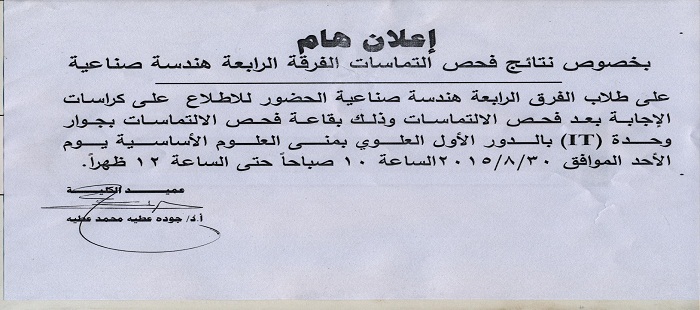 إعلان هام
بخصوص نتائج فحص التماسات الفرقة الرابعة هندسة صناعية
على طلاب الفرق الرابعة هندسة صناعية الحضور للاطلاع على كراسات
الإجابة بعد فحص الالتماسات وذلك بقاعة فحص الالتماسات بجوار
وحدة (IT) بالدور الأول العلوي بمنى العلوم الأساسية يوم
الأحد الموافق ٢٠١٥/٨/٣٠الساعة ١٠ صباحاً حتى الساعة ١٢ ظهراً.
عميد الكلية
أ.د/ جوده عطيه محمد عطيه